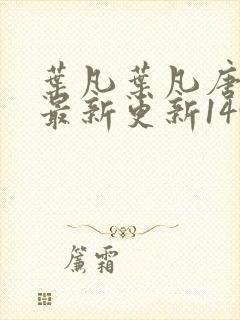 葉凡葉凡唐
最新更新14
簾霜